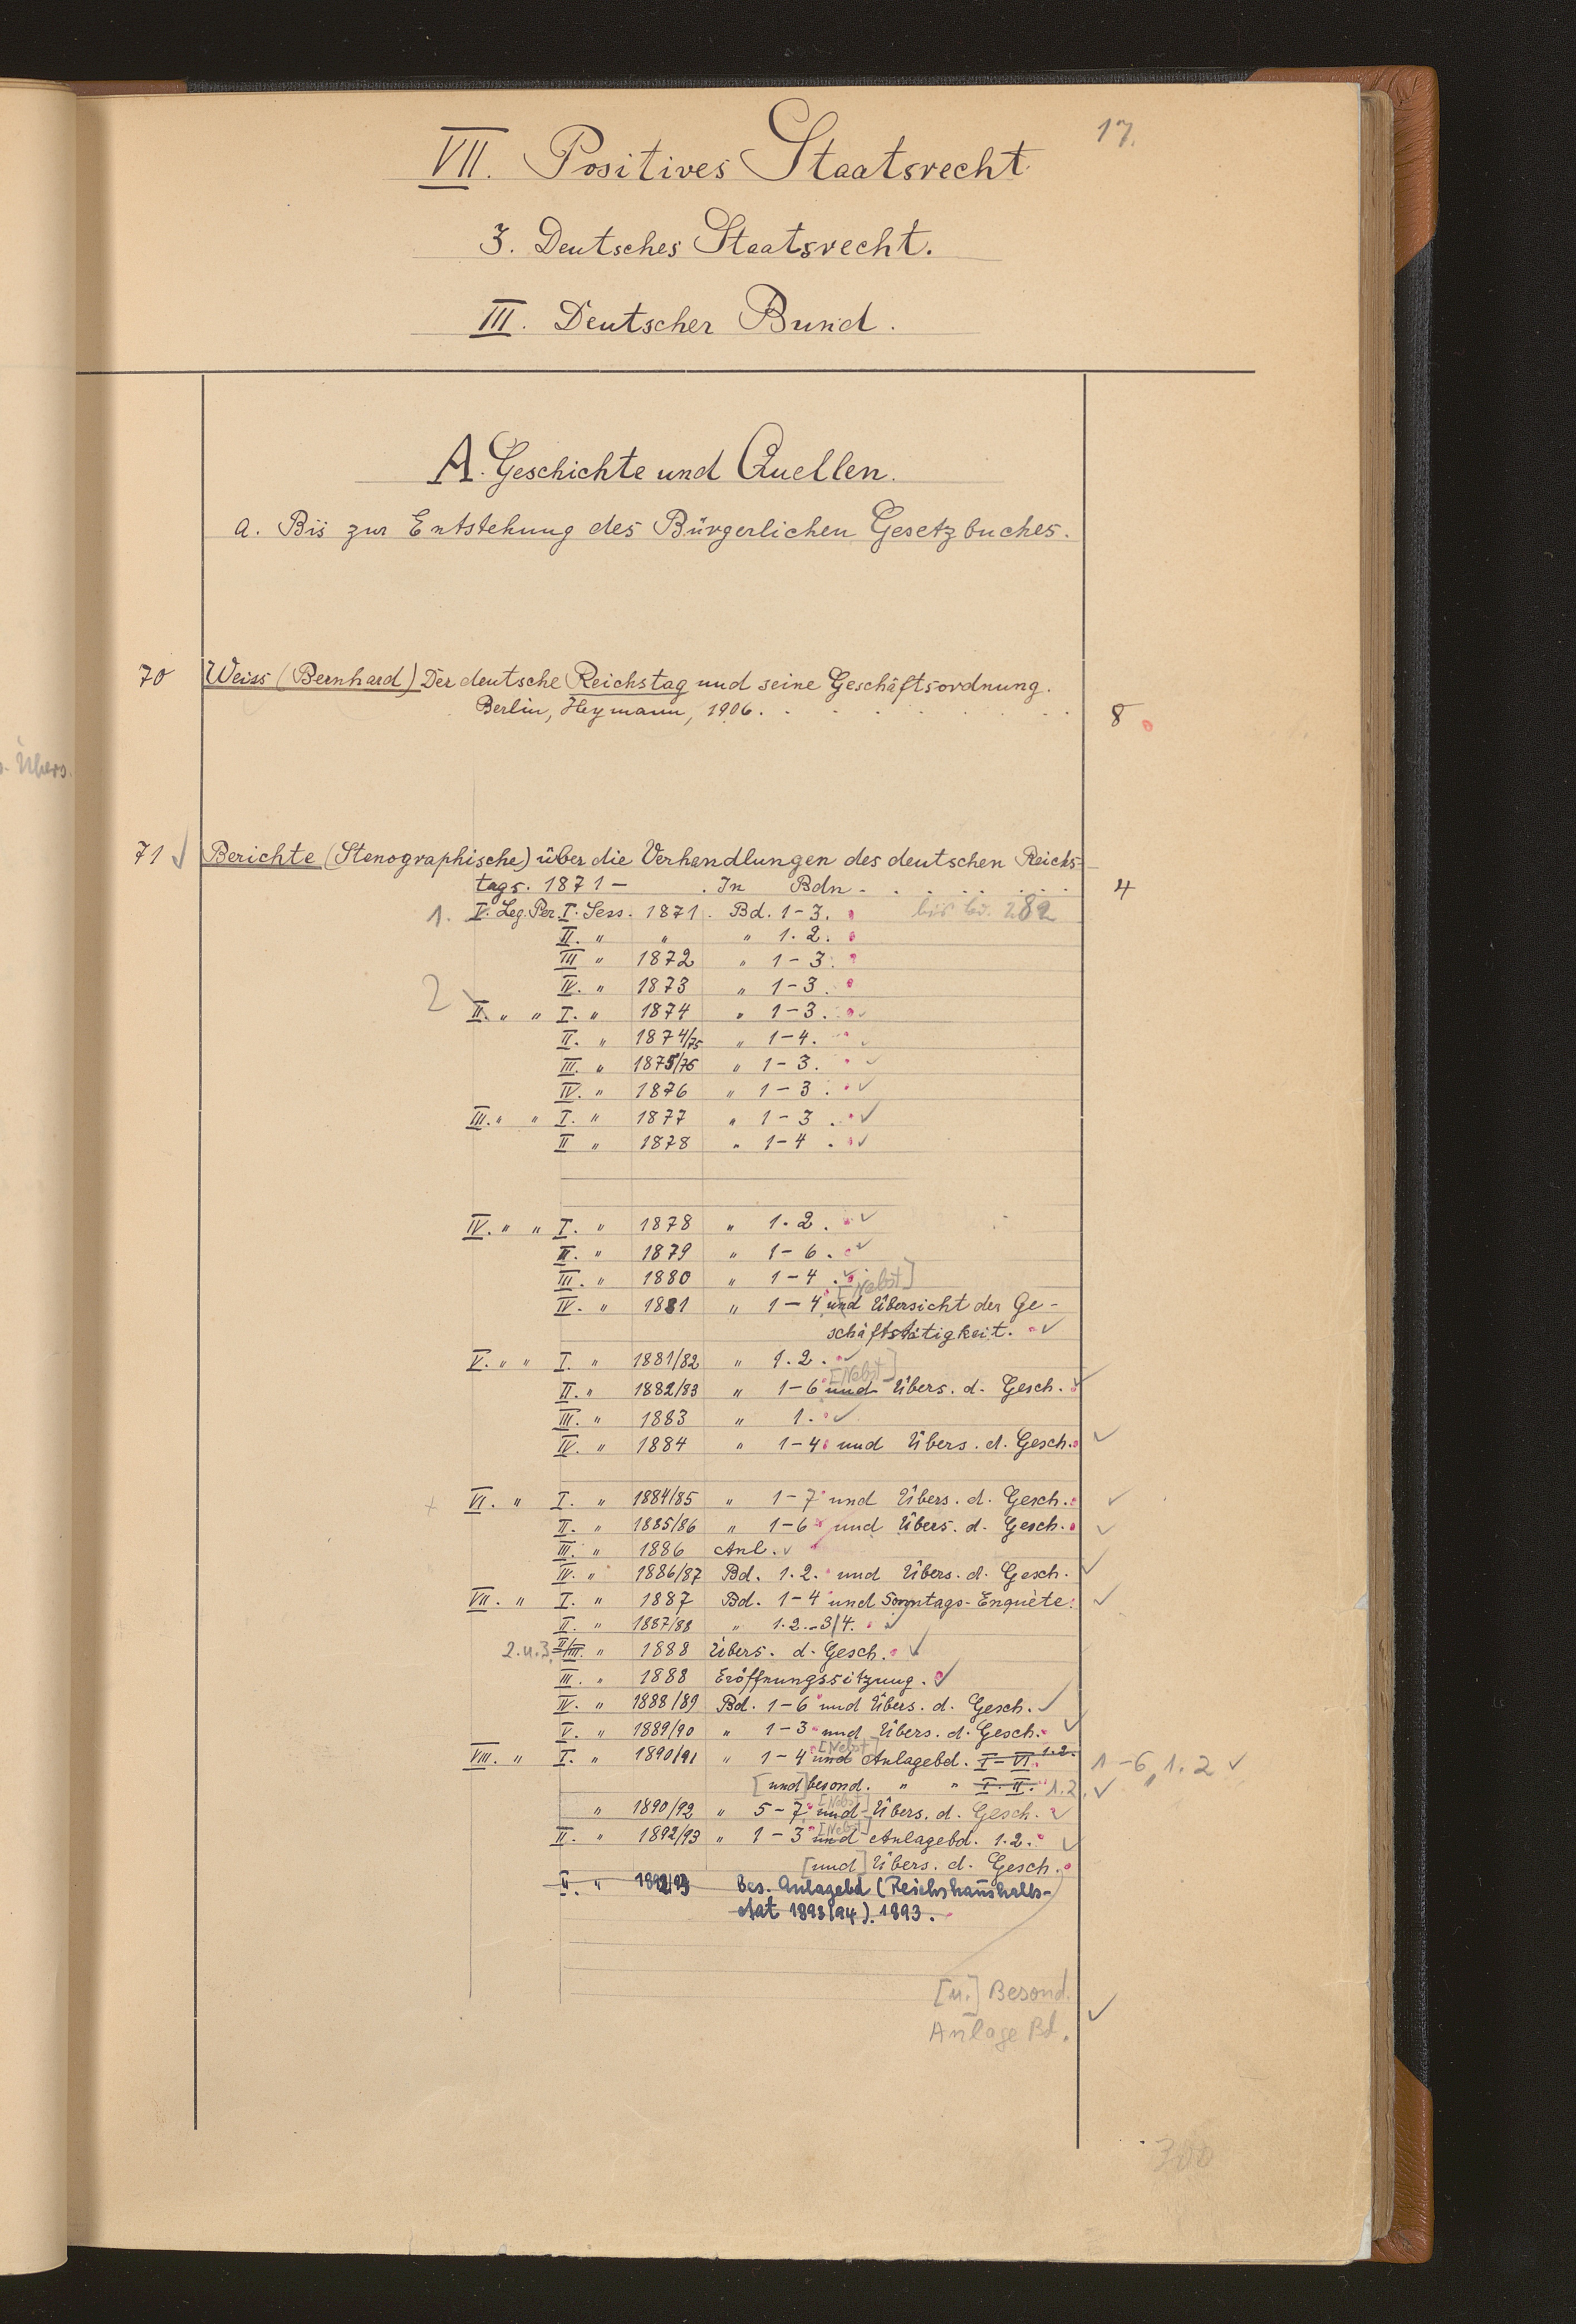 17.
VII. Positives Staatsrecht.
3. Deutsches Staatsrecht.
III. Deutscher Bund.
A. Geschichte und Quellen.
a. Bis zur Entstehung des Bürgerlichen Gesetzbuches.
70 Weiss (Bernhard) Der deutsche Reichstag und seine Geschäftsordnung.
Berlin, Heymann, 1906. 8
Übers.
71 ✓ Berichte (Stenographische) über die Verhandlungen des deutschen Reichs-
tags. 1871 — . In Bdn. 4
1. I. Leg. Per. I. Sess. 1871. Bd. 1-3. bis Bd. 282
II. " " " 1. 2.
III " 1872 " 1-3.
IV. " 1873 " 1-3.
2 II. " " I. " 1874 " 1-3. ✓
II. " 1874/75 " 1-4. ✓
III. " 1875/76 " 1-3. ✓
IV. " 1876 " 1-3. ✓
III. " " I. " 1877 " 1-3. ✓
II " 1878 " 1-4. ✓
IV. " " I. " 1878 " 1. 2. ✓
II. " 1879 " 1-6. ✓
III. " 1880 " 1-4. ✓
[Nebst]
IV. " 1881 " 1-4 und Übersicht der Ge-
schäftstätigkeit. ✓
V. " " I. " 1881/82 " 1. 2. ✓
[Nebst]
II. " 1882/83 " 1-6 und Übers. d. Gesch. ✓
III. " 1883 " 1. ✓
IV. " 1884 " 1-4 und Übers. d. Gesch. ✓
VI. " I. " 1884/85 " 1-7 und Übers. d. Gesch. ✓
II. " 1885/86 " 1-6 und Übers. d. Gesch. ✓
III. " 1886 Anl. ✓
IV. " 1886/87 Bd. 1. 2. und Übers. d. Gesch. ✓
VII. " I. " 1887 Bd. 1-4 und Sonntags-Enquète. ✓
II. " 1887/88 " 1. 2. - 3/4. ✓
2. u. 3. II/III. " 1888 Übers. d. Gesch. ✓
III. " 1888 Eröffnungssitzung. ✓
IV. " 1888/89 Bd. 1-6 und Übers. d. Gesch. ✓
V. " 1889/90 " 1-3 und Übers. d. Gesch. ✓
[Nebst]
VIII. " I. " 1890/91 " 1-4 und Anlagebd. I-VI. 1.2. 1-6, 1. 2 ✓
[und] besond. " " I. II. 1.2. ✓
[Nebst]
" 1890/92 " 5-7 und Übers. d. Gesch. ✓
[Nebst]
II. " 1892/93 " 1-3 und Anlagebd. 1. 2. ✓
[und] Übers. d. Gesch.
II. " 1892/93 Bes. Anlagebd (Reichshaushalts-
etat 1893/94). 1893.
[u.] Besond.
Anlage Bd. ✓
300